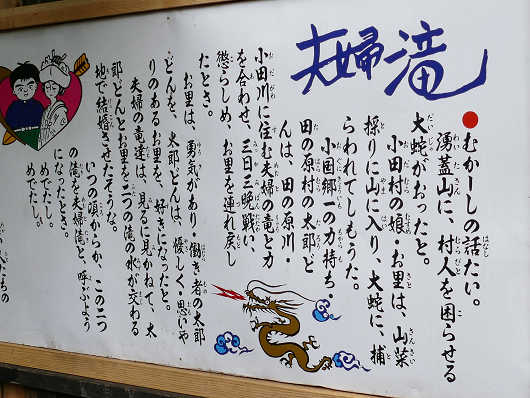 夫婦滝
●むかーしの話たい。
湧蓋山に、村人を困らせる
大蛇がおったと。
小田村の娘・お里は、山菜
採りに山に入り、大蛇に、捕
らわれてしもうた。
小国郷一の力持ち・
田の原村の太郎ど
んは、田の原川・
小田川に住む夫婦の竜と力
を合わせ、三日三晩戦い、
懲らしめ、お里を連れ戻し
たとさ。
お里は、勇気があり・働き者の太郎
どんを、太郎どんは、優しく、思いや
りのあるお里を、好きになった。
夫婦の竜達は、見るに見かねて、太
郎どんとお里を二つの滝の水が交わる
地で結婚させたそうな。
いつの頃からか、この二つ
の滝を夫婦滝と、呼ぶよう
になったとさ。
めでたし。
めでたし。